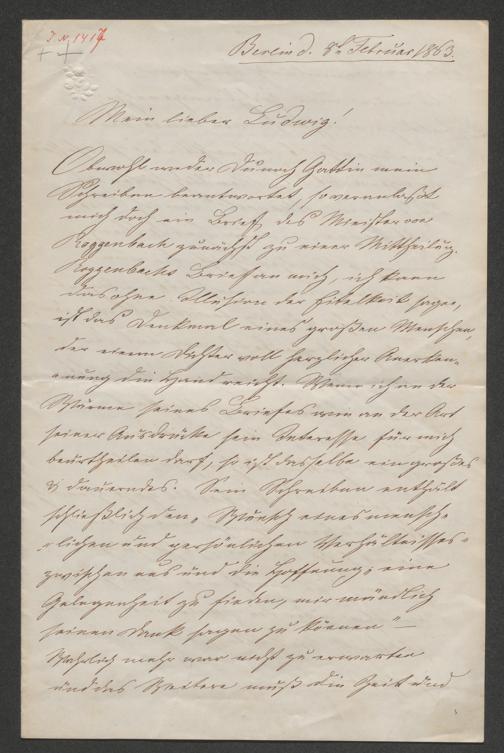 J.N. 1417
Berlin d. 8t Februar 1863.
Mein lieber Ludwig!
Obwohl weder Du noch Gattin mein
Schreiben beantwortet, so veranlaßt
mich doch ein Brief des Minister von
Roggenbach zunächst zu einer Mittheilung.
Roggenbachs Brief an mich, ich kann
das ohne Illusion der Eitelkeit sagen,
ist das Denkmal eines großen Menschen,
der einem Dichter voll herzlicher Anerken-
nung die Hand reicht. Wenn ich in der
Wärme seines Briefes wie an der Art
seiner Ausdrücke sein Interesse für mich
beurtheilen darf, so ist dasselbe ein großes
& dauerndes. Sein Schreiben enthält
schließlich den „Wunsch eines mensch-
lichen und persönlichen Verhältnisses
zwischen uns und die Hoffnung, eine
Gelegenheit zu finden, mir mündlich
seinen Dank sagen zu können" –
Wahrlich mehr war nicht zu erwarten
und das Weitere muß die Zeit und